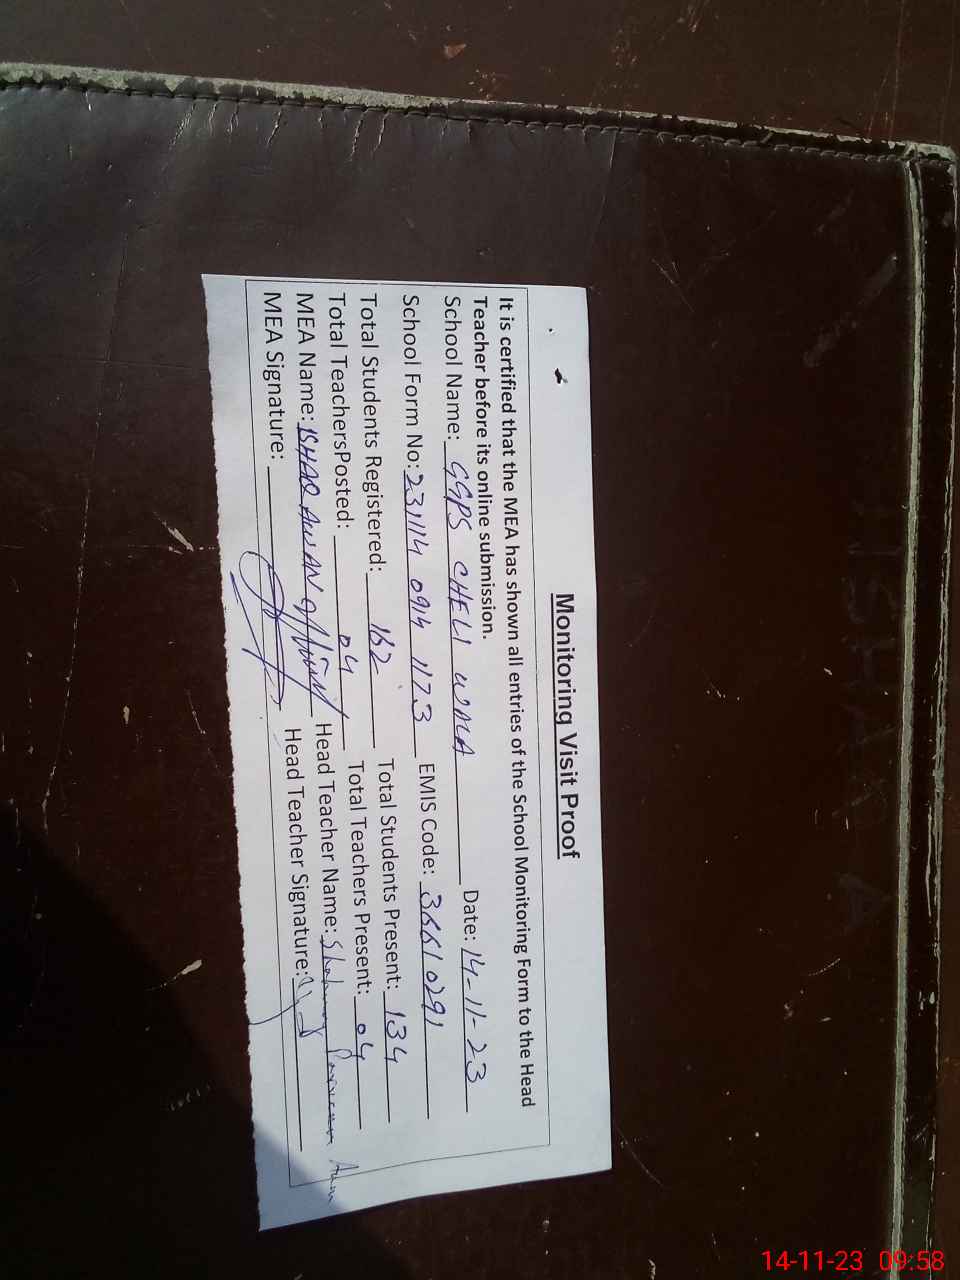 Monitoring Visit Proof
It is certified that the MEA has shown all entries of the School Monitoring Form to the Head
Teacher before its online submission.
School Name: GGPS CHELI WALA Date: 14-11-23
School Form No: 231114 0914 1173 EMIS Code: 36610291
Total Students Registered: 162 Total Students Present: 134
Total TeachersPosted: 04 Total Teachers Present: 04
MEA Name: ISHAQ AWAN Head Teacher Name:
MEA Signature: Head Teacher Signature:
14-11-23 09:58